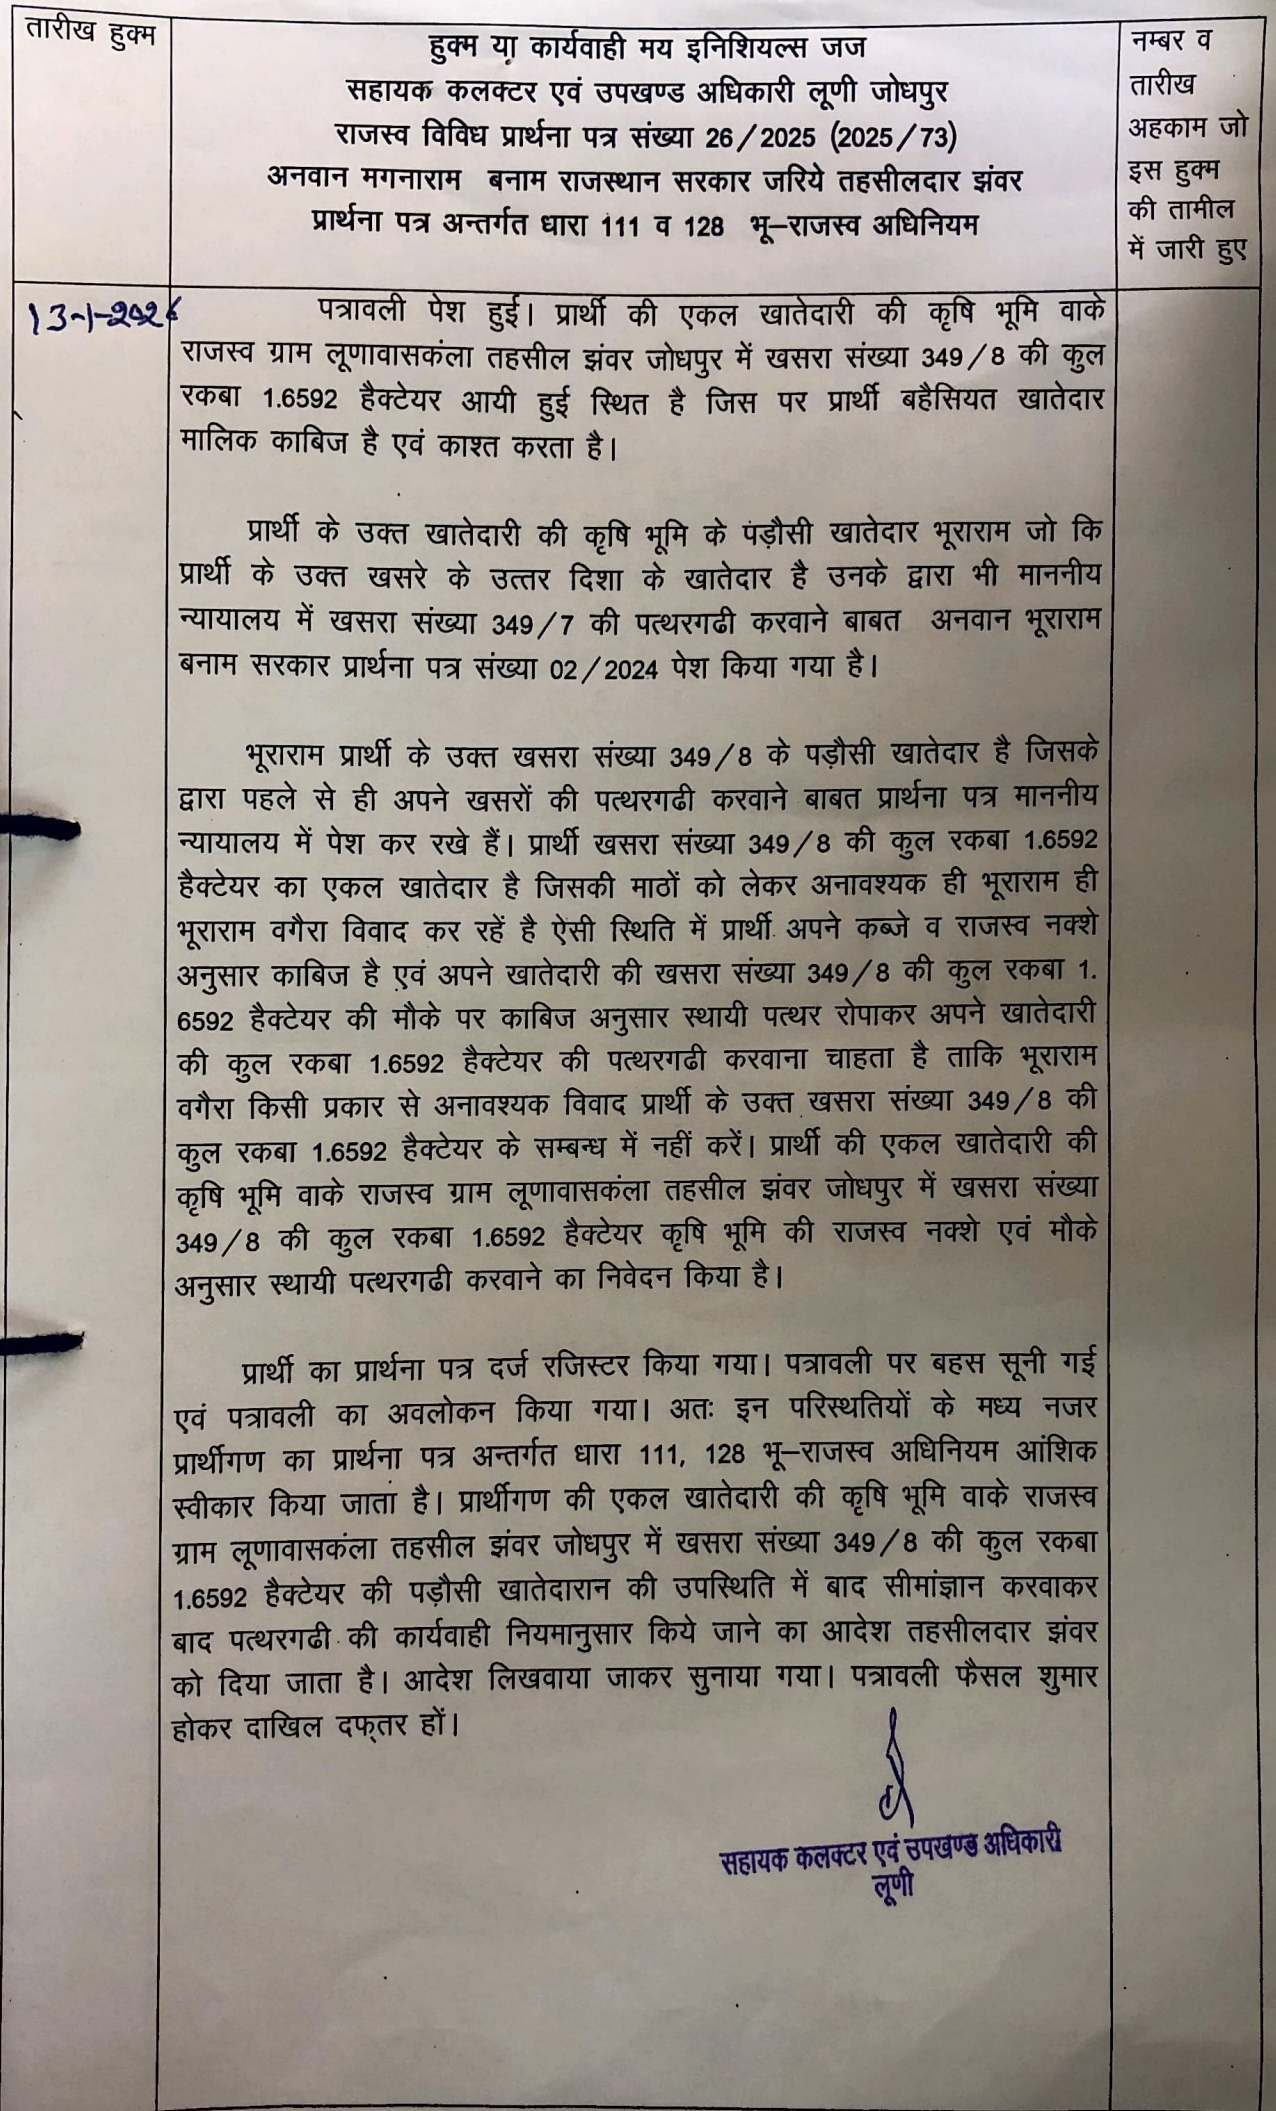 तारीख हुक्म
हुक्म या कार्यवाही मय इनिशियल्स जज
सहायक कलक्टर एवं उपखण्ड अधिकारी लूणी जोधपुर
राजस्व विविध प्रार्थना पत्र संख्या 26/2025 (2025/73)
अनवान मगनाराम बनाम राजस्थान सरकार जरिये तहसीलदार झंवर
प्रार्थना पत्र अन्तर्गत धारा 111 व 128 भू–राजस्व अधिनियम
नम्बर व
तारीख
अहकाम जो
इस हुक्म
की तामील
में जारी हुए
13-1-2026
पत्रावली पेश हुई। प्रार्थी की एकल खातेदारी की कृषि भूमि वाके
राजस्व ग्राम लूणावासकंला तहसील झंवर जोधपुर में खसरा संख्या 349/8 की कुल
रकबा 1.6592 हैक्टेयर आयी हुई स्थित है जिस पर प्रार्थी बहैसियत खातेदार
मालिक काबिज है एवं काश्त करता है।
प्रार्थी के उक्त खातेदारी की कृषि भूमि के पंड़ौसी खातेदार भूराराम जो कि
प्रार्थी के उक्त खसरे के उत्तर दिशा के खातेदार है उनके द्वारा भी माननीय
न्यायालय में खसरा संख्या 349/7 की पत्थरगढी करवाने बाबत अनवान भूराराम
बनाम सरकार प्रार्थना पत्र संख्या 02/2024 पेश किया गया है।
भूराराम प्रार्थी के उक्त खसरा संख्या 349/8 के पड़ौसी खातेदार है जिसके
द्वारा पहले से ही अपने खसरों की पत्थरगढी करवाने बाबत प्रार्थना पत्र माननीय
न्यायालय में पेश कर रखे हैं। प्रार्थी खसरा संख्या 349/8 की कुल रकबा 1.6592
हैक्टेयर का एकल खातेदार है जिसकी माठों को लेकर अनावश्यक ही भूराराम ही
भूराराम वगैरा विवाद कर रहें है ऐसी स्थिति में प्रार्थी अपने कब्जे व राजस्व नक्शे
अनुसार काबिज है एवं अपने खातेदारी की खसरा संख्या 349/8 की कुल रकबा 1.
6592 हैक्टेयर की मौके पर काबिज अनुसार स्थायी पत्थर रोपाकर अपने खातेदारी
की कुल रकबा 1.6592 हैक्टेयर की पत्थरगढी करवाना चाहता है ताकि भूराराम
वगैरा किसी प्रकार से अनावश्यक विवाद प्रार्थी के उक्त खसरा संख्या 349/8 की
कुल रकबा 1.6592 हैक्टेयर के सम्बन्ध में नहीं करें। प्रार्थी की एकल खातेदारी की
कृषि भूमि वाके राजस्व ग्राम लूणावासकंला तहसील झंवर जोधपुर में खसरा संख्या
349/8 की कुल रकबा 1.6592 हैक्टेयर कृषि भूमि की राजस्व नक्शे एवं मौके
अनुसार स्थायी पत्थरगढी करवाने का निवेदन किया है।
प्रार्थी का प्रार्थना पत्र दर्ज रजिस्टर किया गया। पत्रावली पर बहस सूनी गई
एवं पत्रावली का अवलोकन किया गया। अतः इन परिस्थतियों के मध्य नजर
प्रार्थीगण का प्रार्थना पत्र अन्तर्गत धारा 111, 128 भू–राजस्व अधिनियम आंशिक
स्वीकार किया जाता है। प्रार्थीगण की एकल खातेदारी की कृषि भूमि वाके राजस्व
ग्राम लूणावासकंला तहसील झंवर जोधपुर में खसरा संख्या 349/8 की कुल रकबा
1.6592 हैक्टेयर की पड़ौसी खातेदारान की उपस्थिति में बाद सीमांज्ञान करवाकर
बाद पत्थरगढी की कार्यवाही नियमानुसार किये जाने का आदेश तहसीलदार झंवर
को दिया जाता है। आदेश लिखवाया जाकर सुनाया गया। पत्रावली फैसल शुमार
होकर दाखिल दफ्तर हों।
सहायक कलक्टर एवं उपखण्ड अधिकारी
लूणी